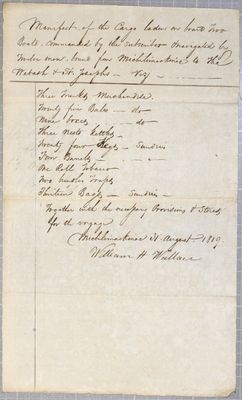 Manifest of the Cargo laden on board Two
Boats, commanded by the subscriber navigated by
twelve men, bound from Michilimackinac to the
Wabash & St. Josephs — Viz —
Three Trunks Merchandise
Twenty five Bales — do
Nine Boxes — do
Three nests Kettles —
Twenty four Kegs — Sundries
Four Barrels —
One Roll Tobacco
Two bundles Traps
Thirteen Bags — Sundries —
Together with the necessary Provisions & Stores
for the voyage
Michilimackinac 31 August 1819.
William H Wallace